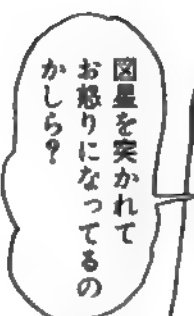 図星を突かれて
お怒りになってるの
かしら？